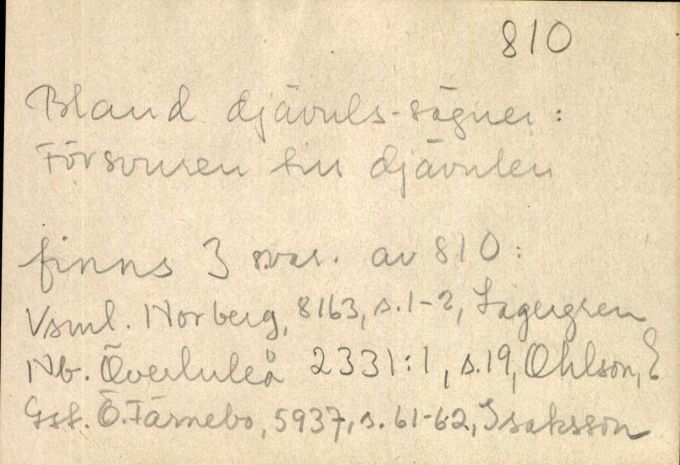 810
Bland djävuls-sägner:
Försvuren till djävulen
finns 3 var. av 810:
Vsml. Norberg, 8163, s.1-2, Lagergren
Nb. Överluleå 2331:1, s.19, Ohlson, E
Gstr. Ö. Färnebo, 5937, s. 61-62, Isaksson